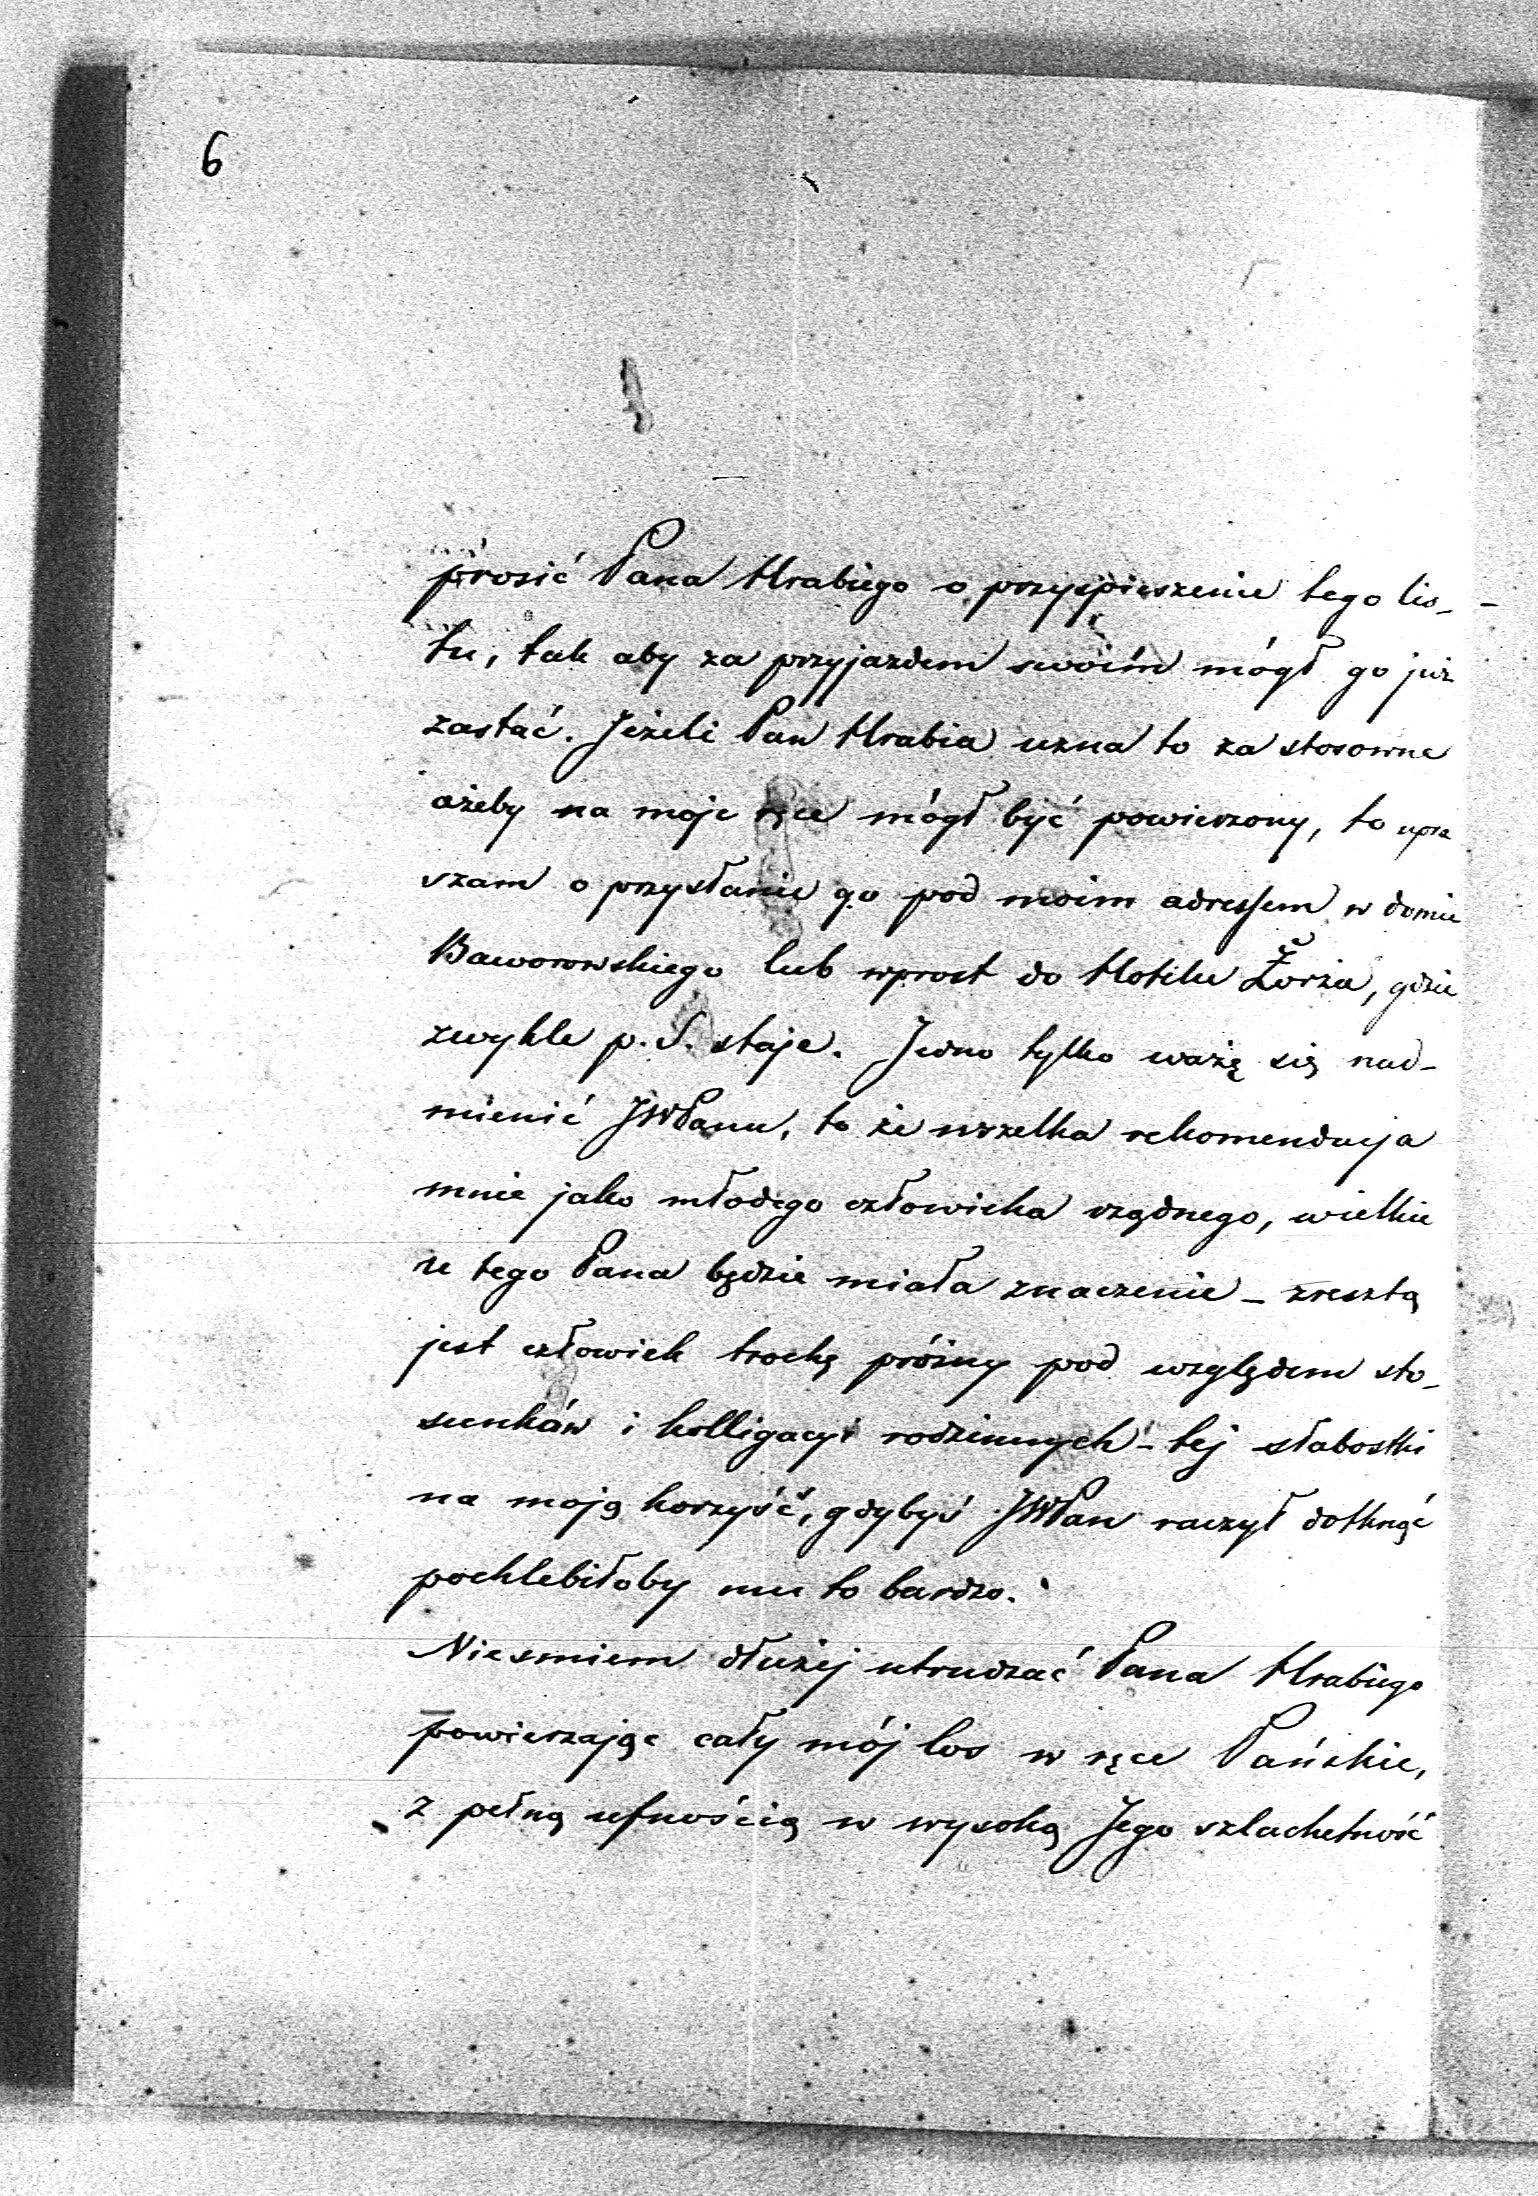 6
prosić Pana Hrabiego o przyśpieszenie tego lis-
tu, tak aby za przyjazdem swoim mógł go już
zastać. Jeżeli Pan Hrabia uzna to za stosowne
ażeby na moje ręce mógł być powierzony, to upra
szam o przysłanie go pod moim adressem w domu
Baworowskiego lub wprost do Hotelu Żorża, gdzie
zwykle p. S. staje. Jedno tylko ważę się nad-
mienić JWPanu, to że wszelka rekomendacja
mnie jako młodego człowieka rządnego, wielkie
u tego Pana będzie miała znaczenie – zresztą
jest człowiek trochę próżny pod względem sto-
sunków i kolligacyi rodzinnych – tej słabostki
na moją korzyść, gdybyś JWPan raczył dotknąć
pochlebiłoby mu to bardzo.
Nieśmiem dłużej utrudzać Pana Hrabiego
powierzając cały mój los w ręce Pańskie,
z pełną ufnością w wysoką Jego szlachetność